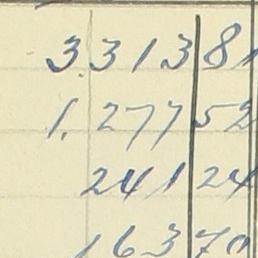 3.313 81
1.277 52
241 24
16370